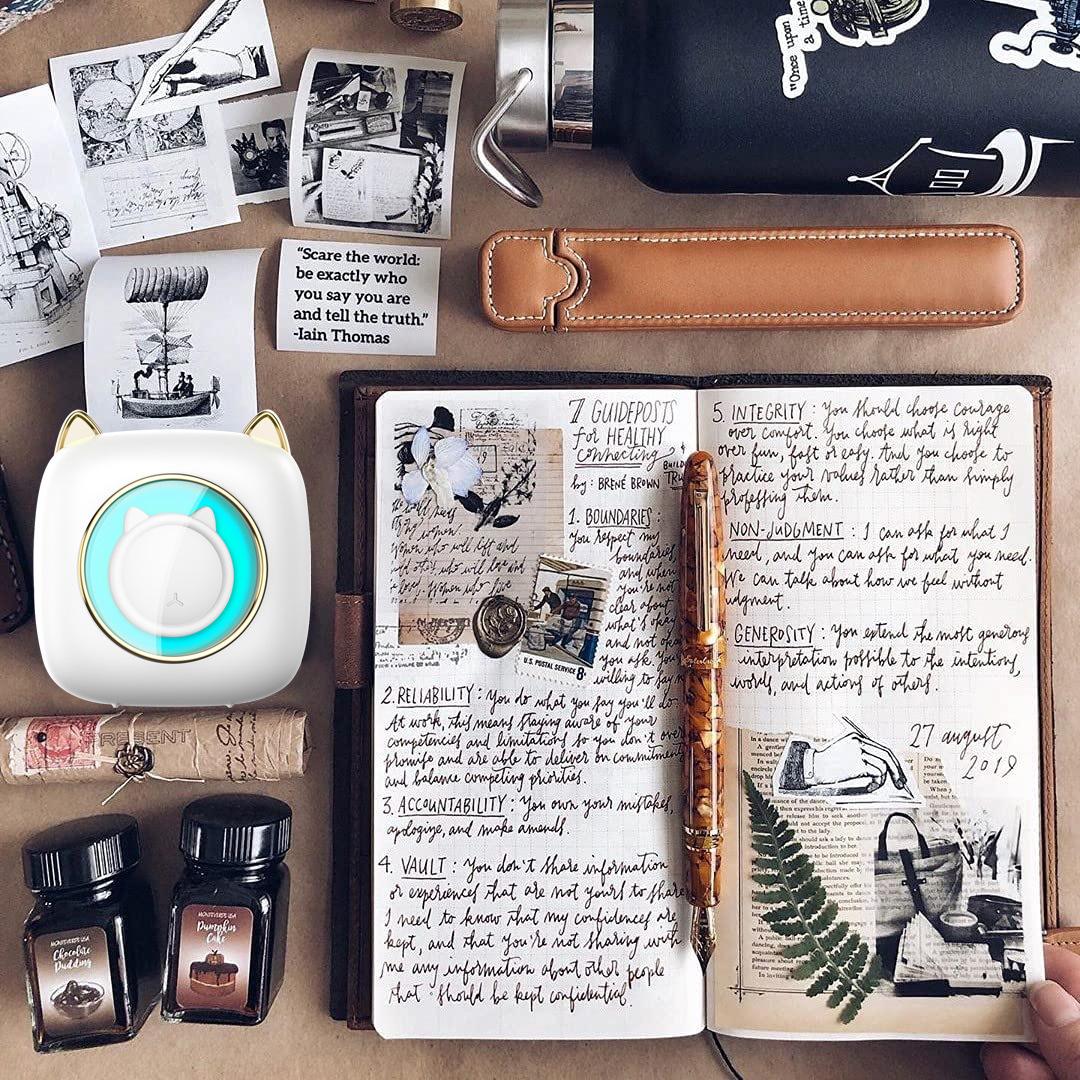 "Once upon
a time
"Scare the world:
be exactly who
you say you are
and tell the truth."
-Iain Thomas
7 GUIDEPOSTS
for HEALTHY
connecting
BUILD
by: BRENÉ BROWN
1. BOUNDARIES:
You respect my
boundaries
and when
you're not
clear about
what's okay
and not okay
you ask. You
willing to say
Women who will lift and
U.S. POSTAL SERVICE 8¢
2. RELIABILITY: You do what you say you'll do.
At work, this means staying aware of your
competencies and limitations so you don't over
promise and are able to deliver on commitments
and balance competing priorities.
3. ACCOUNTABILITY: You own your mistakes,
apologize, and make amends.
4. VAULT: You don't share information
or experiences that are not yours to share.
I need to know that my confidences are
kept, and that you're not sharing with
me any information about other people
that should be kept confidential.
5. INTEGRITY: You should choose courage
over comfort. You choose what is right
over fun, fast or easy. And you choose to
practice your values rather than simply
professing them.
NON-JUDGMENT: I can ask for what I
need, and you can ask for what you need.
We can talk about how we feel without
judgment.
GENEROSITY: You extend the most generous
interpretation possible to the intentions,
words, and actions of others.
27 august
2019
PRESENT
MONTEVERDE USA
Chocolate
Pudding
MONTEVERDE USA
Pumpkin
Cake